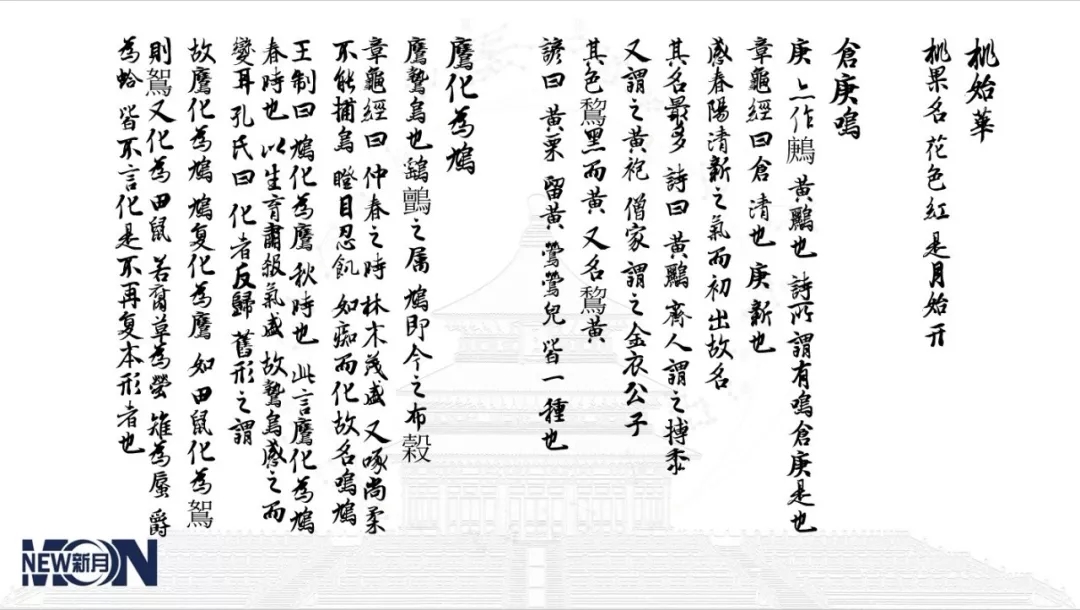 桃始華
桃果名 花色紅 是月始开
倉庚鳴
庚 亦作鶊 黃鸝也 詩所謂有鳴倉庚是也
章龜經曰倉 清也 庚 新也
感春陽清新之氣而初出故名
其名最多 詩曰 黃鸝 齊人謂之搏黍
又謂之黃袍 僧家 謂之金衣公子
其色鵹黑而黃 又名鵹黃
諺曰 黃栗 留黃 鶯鶯兒 皆一種也
鷹化為鳩
鷹鷙鳥也 鷂鸇之属 鳩即今之布穀
章龜經曰 仲春之時 林木茂盛 又啄尚柔
不能捕鳥 瞪目忍飢 如痴而化故名鳴鳩
王制曰 鳩化為鷹 秋時也 此言鷹化為鳩
春時也 以生育肅殺氣盛 故鷙鳥感之而
變耳 孔氏曰 化者反歸 舊形之謂
故鷹化為鳩 鳩复化為鷹 如田鼠化為鴽
則鴽又化為田鼠 若腐草為螢 雉為蜃 爵
為蛤 皆不言化是不再复本形者也
NEW新月
MOON